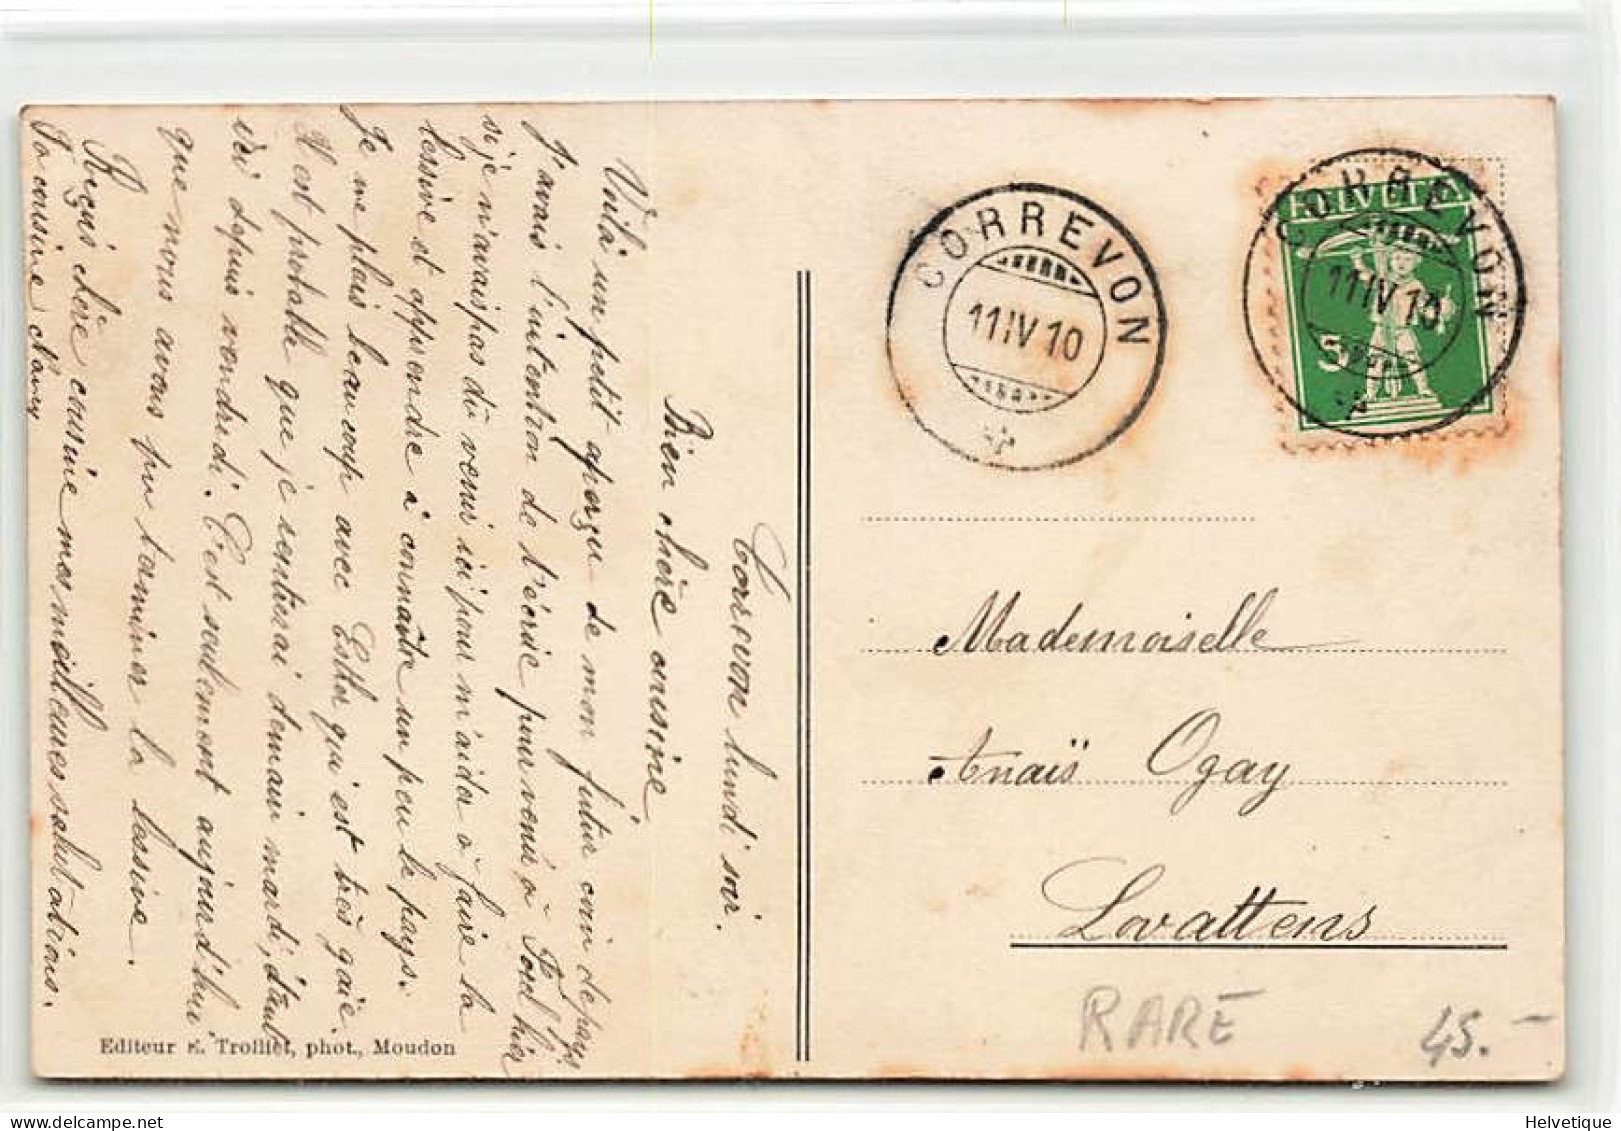 Correvon lundi soir.
Bien chère cousine
Voilà un petit aperçu de mon futur coin de pays
J'avais l'intention de t'écrire pour venir à hier
si je n'avais pas dû venir ici pour m'aider à faire la
lessive et apprendre à connaître un peu le pays.
Je me plais beaucoup avec Esther qu'est très gaie.
Il est probable que je rentrerai demain mardi,
ici depuis vendredi. C'est seulement aujourd'hui
que nous avons pu terminer la lessive.
Reçois chère cousine mes meilleures salutations.
Ta cousine
Editeur E. Trolliet, phot., Moudon
CORREVON
11 IV 10
HELVETIA
5
CORREVON
11 IV 10
Mademoiselle
Anaïs Ogay
Lovattens
RARE
45.-
Helvetique